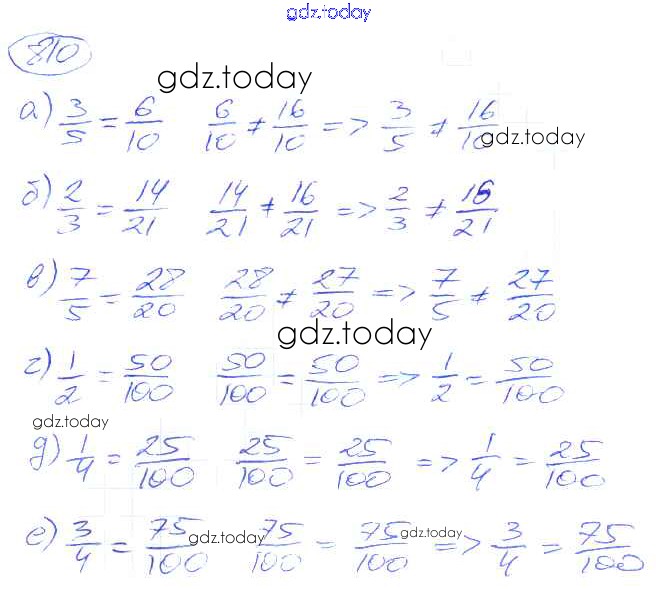 gdz.today
810
gdz.today
а) 3/5 = 6/10 6/10 ≠ 16/10 => 3/5 ≠ 16/10
gdz.today
б) 2/3 = 14/21 14/21 ≠ 16/21 => 2/3 ≠ 16/21
в) 7/5 = 28/20 28/20 ≠ 27/20 => 7/5 ≠ 27/20
gdz.today
г) 1/2 = 50/100 50/100 = 50/100 => 1/2 = 50/100
gdz.today
д) 1/4 = 25/100 25/100 = 25/100 => 1/4 = 25/100
е) 3/4 = 75/100 75/100 = 75/100 => 3/4 = 75/100
gdz.today gdz.today